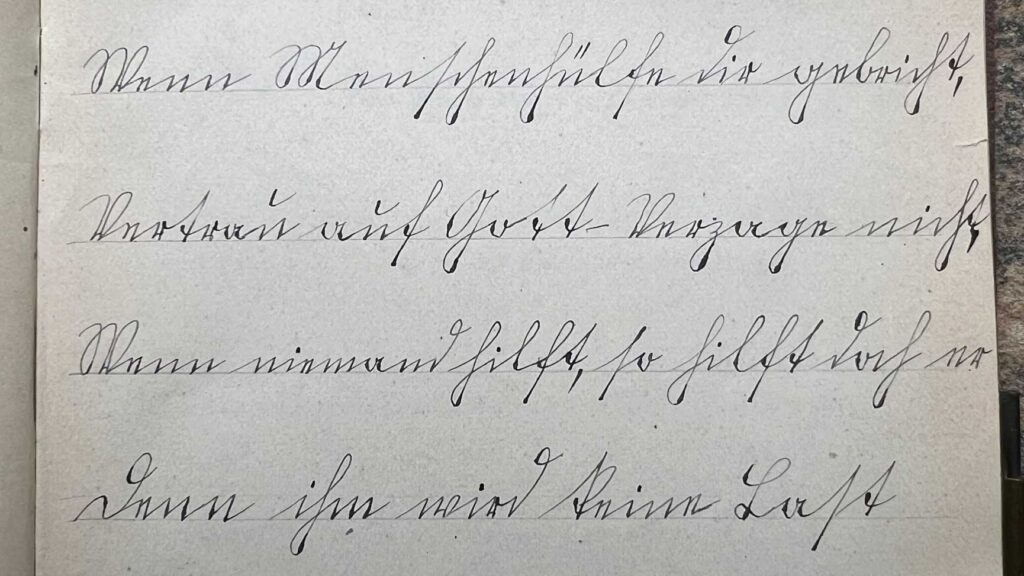 Wenn Menschenhülfe dir gebricht,
Vertrau auf Gott – Verzage nicht,
Wenn niemand hilft, so hilft doch er
Denn ihm wird keine Last